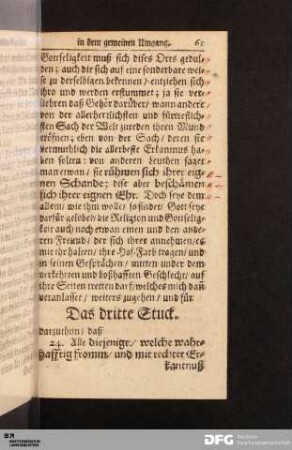 in dem gemeinen Umgang. 61
Gottseligkeit muß sich dises Ores gedul-
den; auch die sich auf eine sonderbare wei-
se zu derselbigen bekennen/ entziehen sich
ihro und werden erstummet; ja sie ver-
liehren daß Gehör darüber/ wann andere
von der allerherrlichsten und fürtreflich-
sten Sach der Welt zureden ihren Mund
eröfnen; eben von der Sach/ deren sie
vermuthlich die allerbeste Erkantnus ha-
ben solten: von anderen Leuthen saget
man etwan/ sie rühmen sich ihrer eig-
nen Schande; dise aber beschämen
sich ihrer eignen Ehr. Doch seye dem
allem/ wie ihm wolle/ so findet/ Gott seye
darfür gelobet/ die Religion und Gottselig-
keit auch noch etwan einen und den ande-
ren Freund/ der sich ihrer annehmen/ es
mit ihr halten/ ihre Hof-Farb tragen/ und
in seinen Gesprächen/ mitten under dem
verkehrten und boßhafften Geschlecht/ auf
ihre Seiten tretten darf/ welches mich dañ
veranlasset/ weiters zugehen/ und für
Das dritte Stuck.
darzuthun/ daß
24. Alle diejenige/ welche wahr-
hafftig fromm/ und mit rechter Er-
kantnuß
DFG Deutsche
Forschungsgemeinschaft